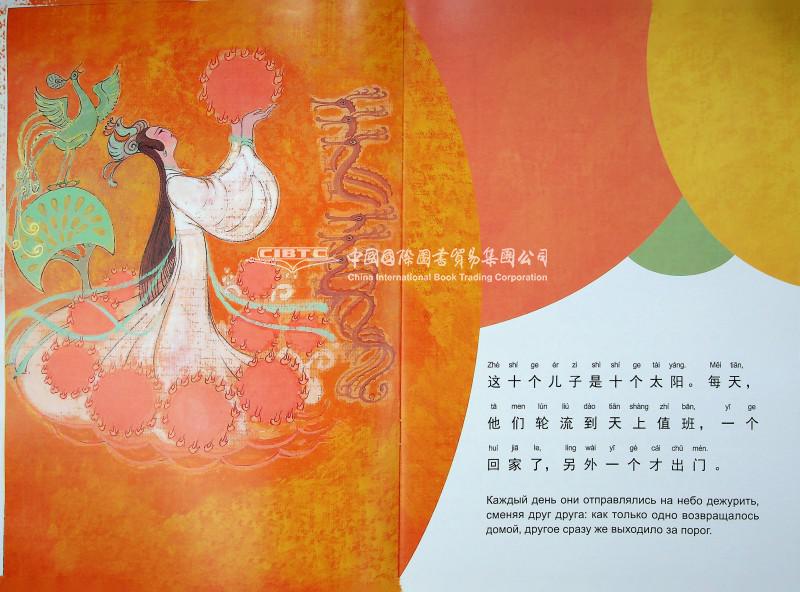 CIBTC 中國國際圖書貿易集團公司
China International Book Trading Corporation
Zhè shí ge ér zi shì shí ge tài yáng. Měi tiān,
这十个儿子是十个太阳。每天，
tā men lún liú dào tiān shàng zhí bān, yī ge
他们轮流到天上值班，一个
huí jiā le, lìng wài yī gè cái chū mén.
回家了，另外一个才出门。
Каждый день они отправлялись на небо дежурить,
сменяя друг друга: как только одно возвращалось
домой, другое сразу же выходило за порог.